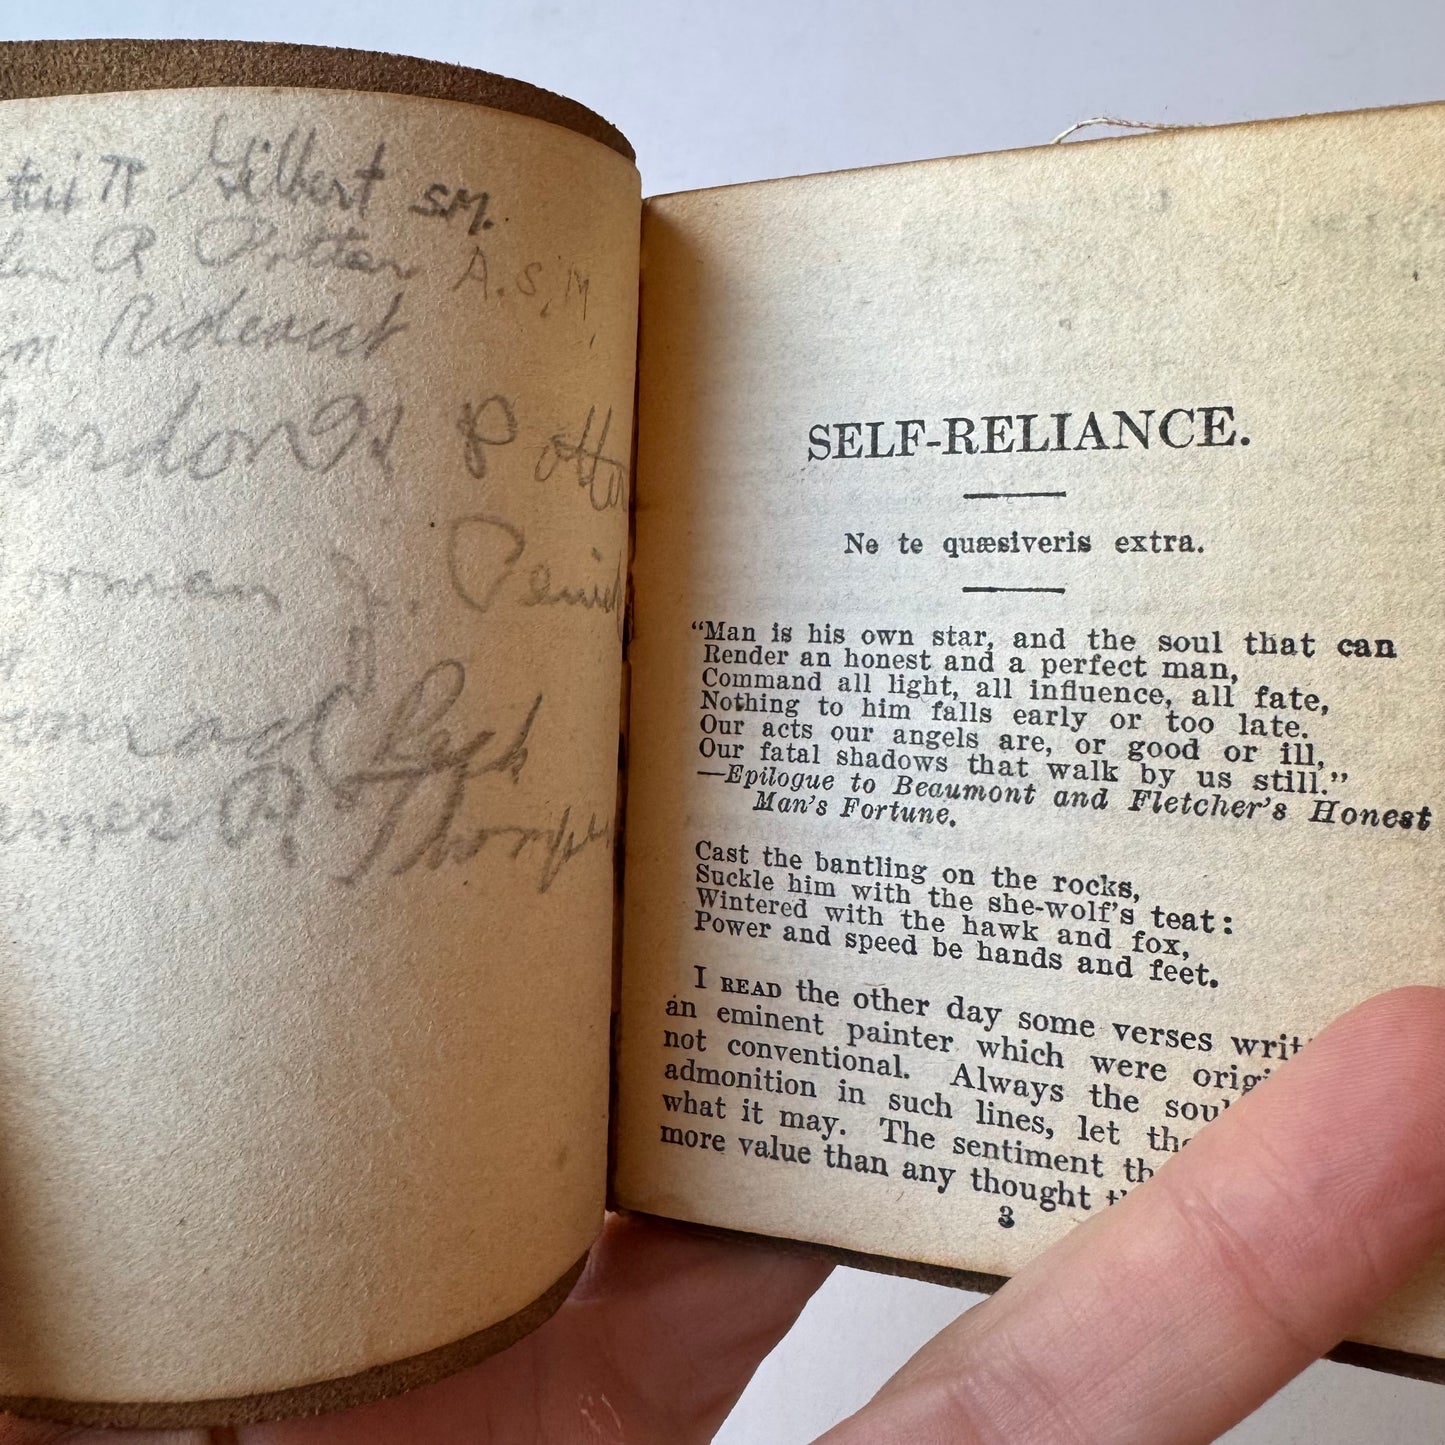 Gilbert S.M.
R Potter A.S.M.
Rideout
Potter
J.
Thomps
SELF-RELIANCE.
Ne te quæsiveris extra.
“Man is his own star, and the soul that can
Render an honest and a perfect man,
Command all light, all influence, all fate,
Nothing to him falls early or too late.
Our acts our angels are, or good or ill,
Our fatal shadows that walk by us still.”
—Epilogue to Beaumont and Fletcher’s Honest
Man’s Fortune.
Cast the bantling on the rocks,
Suckle him with the she-wolf’s teat:
Wintered with the hawk and fox,
Power and speed be hands and feet.
I READ the other day some verses writt
an eminent painter which were origi
not conventional. Always the soul
admonition in such lines, let the
what it may. The sentiment th
more value than any thought t
3